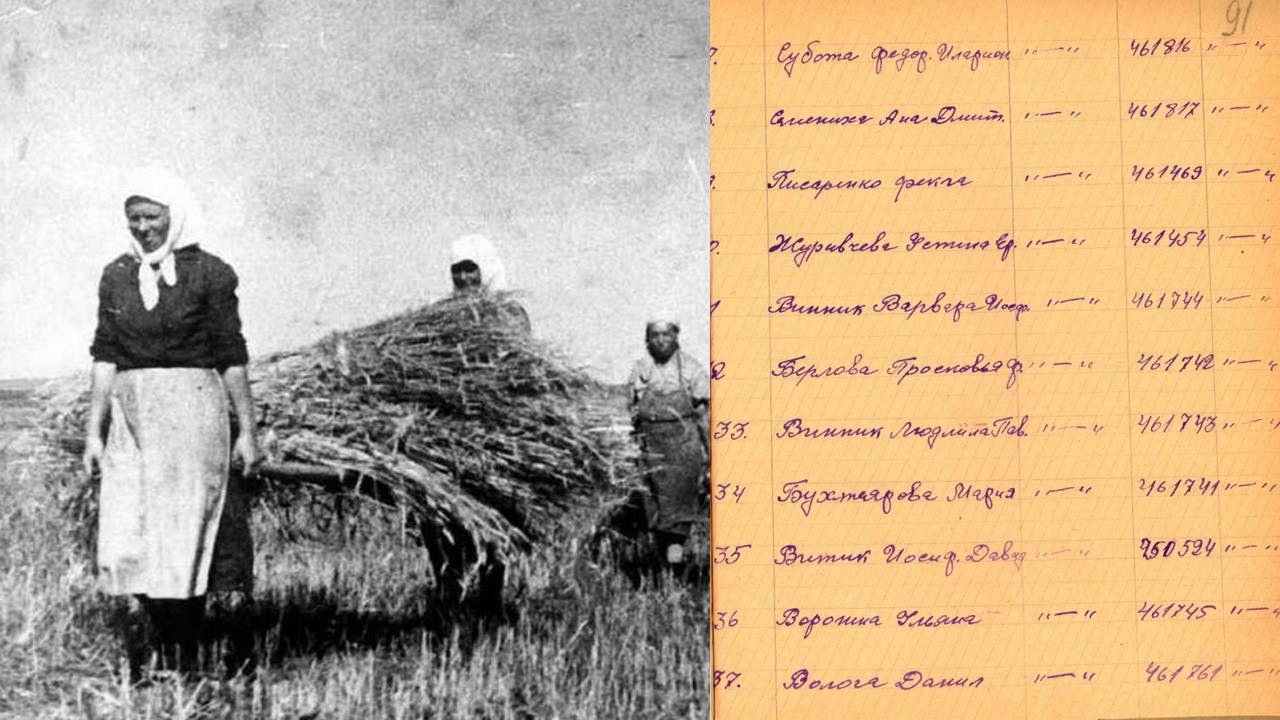 91
7. Субота Федор. Иларион "—" 461816 "—"
Семениха Ана Дмит. "—" 461817 "—"
Писаренко Фекла "—" 461469 "—"
Журавчева Устина "—" 461454 "—"
Винник Варвара Иосиф. "—" 461744 "—"
2 Берлова Просковья Ф. "—" 461742 "—"
33. Винник Людмила Пав. "—" 461743 "—"
34 Бухтиярова Мария "—" 461741 "—"
35 Витик Иосиф. Давид "—" 950524 "—"
36 Воронина Ульяна "—" 461745 "—"
37. Волога Данил "—" 461761 "—"